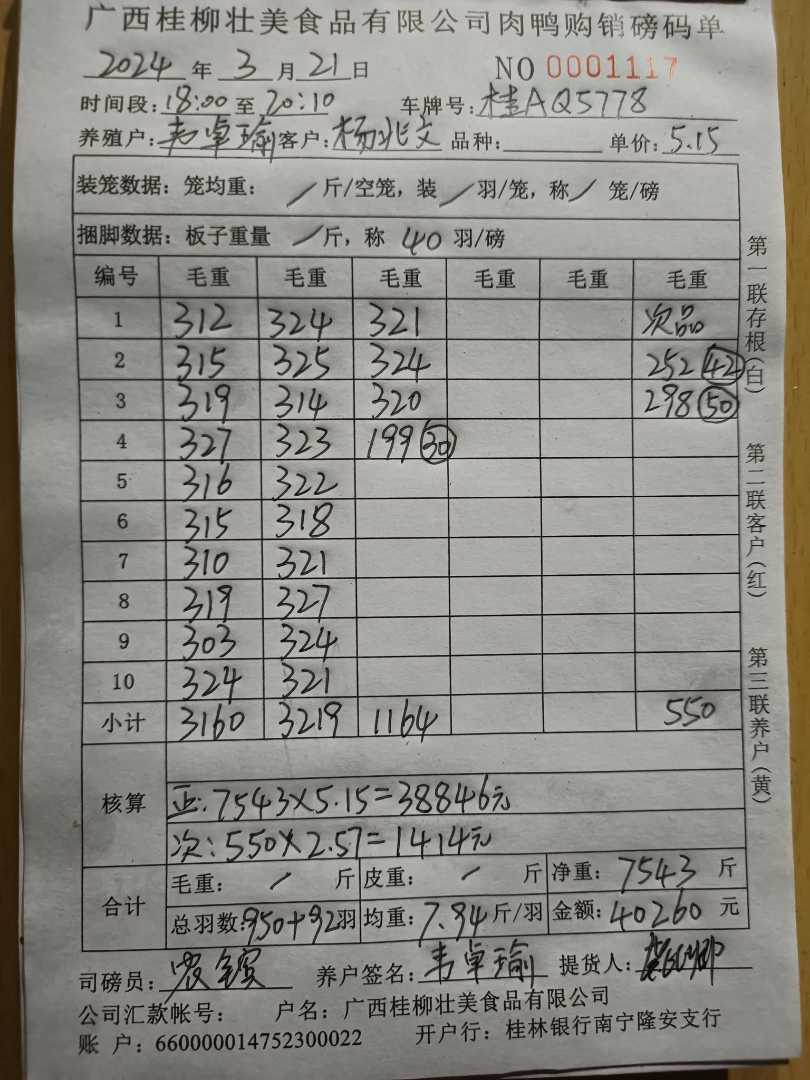 广西桂柳壮美食品有限公司肉鸭购销磅码单
2024 年 3 月 21 日 NO 0001117
时间段: 18:00 至 20:10 车牌号: 桂AQ5778
养殖户: 韦卓瑜 客户: 杨兆文 品种: 单价: 5.15
装笼数据: 笼均重: / 斤/空笼, 装 / 羽/笼, 称 / 笼/磅
捆脚数据: 板子重量 / 斤, 称 40 羽/磅
编号 毛重 毛重 毛重 毛重 毛重 毛重
1 312 324 321 次品
2 315 325 324 252 42
3 319 314 320 298 50
4 327 323 199 30
5 316 322
6 315 318
7 310 321
8 319 327
9 303 324
10 324 321
小计 3160 3219 1164 550
核算
正: 7543×5.15=38846元
次: 550×2.57=1414元
合计
毛重: / 斤 皮重: / 斤 净重: 7543 斤
总羽数: 950+92 羽 均重: 7.94 斤/羽 金额: 40260 元
司磅员: 养户签名: 韦卓瑜 提货人:
公司汇款帐号: 户名: 广西桂柳壮美食品有限公司
账 户: 660000014752300022 开户行: 桂林银行南宁隆安支行
第一联存根(白)
第二联客户(红)
第三联养户(黄)